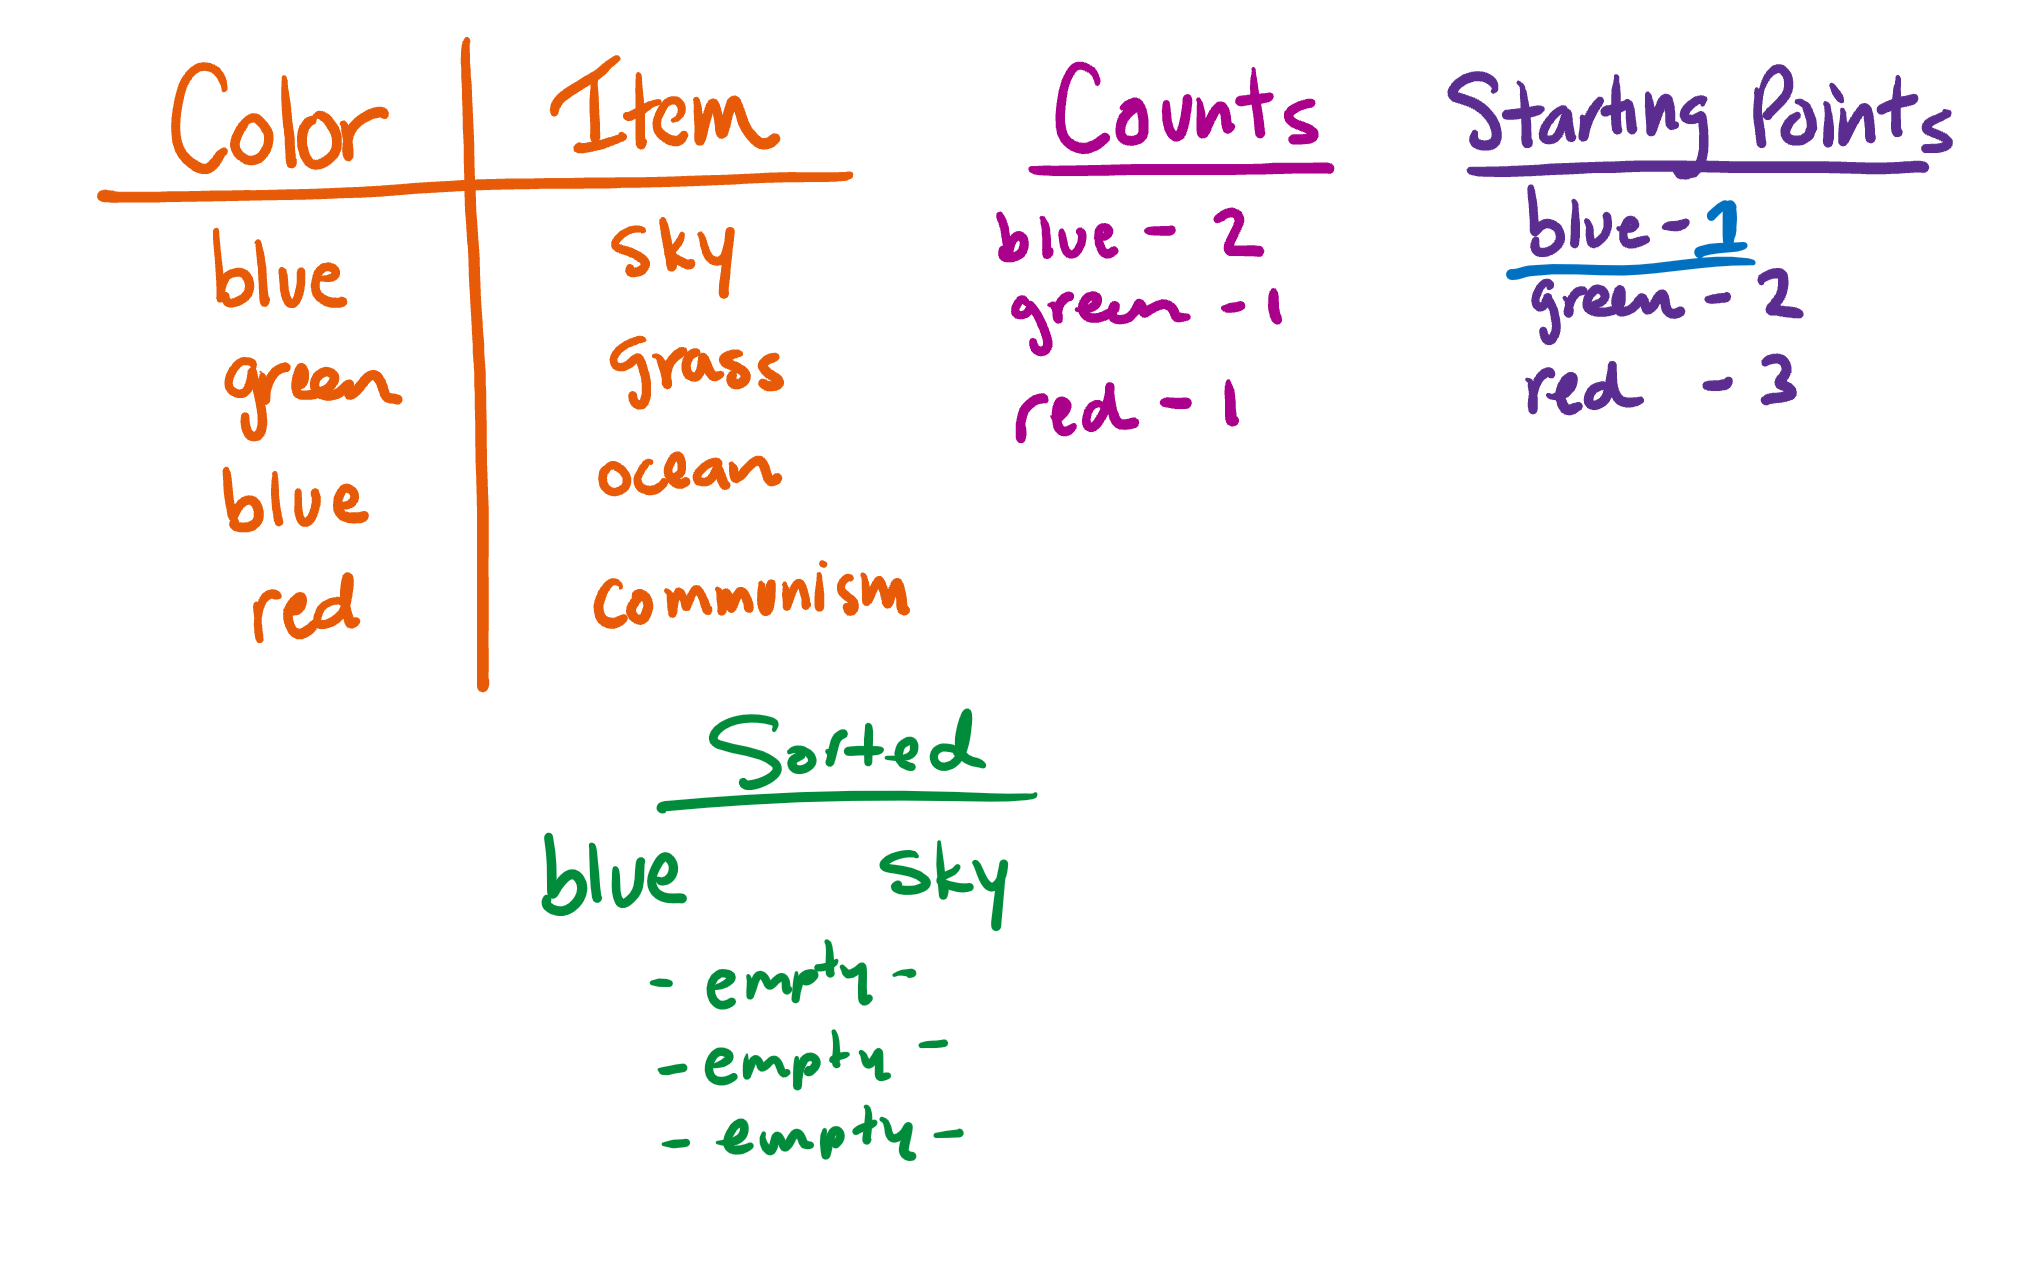 Color Item
blue sky
green grass
blue ocean
red communism
Counts
blue - 2
green - 1
red - 1
Starting Points
blue - 1
green - 2
red - 3
Sorted
blue sky
- empty -
- empty -
- empty -